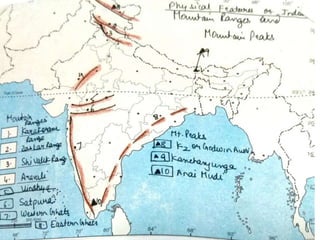 Physical Features of India
Mountain Ranges and
Mountain Peaks
Mountain
Ranges
1. Karakoram
Range
2. Zaskar Range
3. Shivalik Range
4 Aravali
5 Vindhya
6 Satpura
7 Western Ghats
8 Eastern Ghats
Mt. Peaks
▲8 K2 or Godwin Aus
▲9 Kanchenjunga
▲10 Anai Mudi